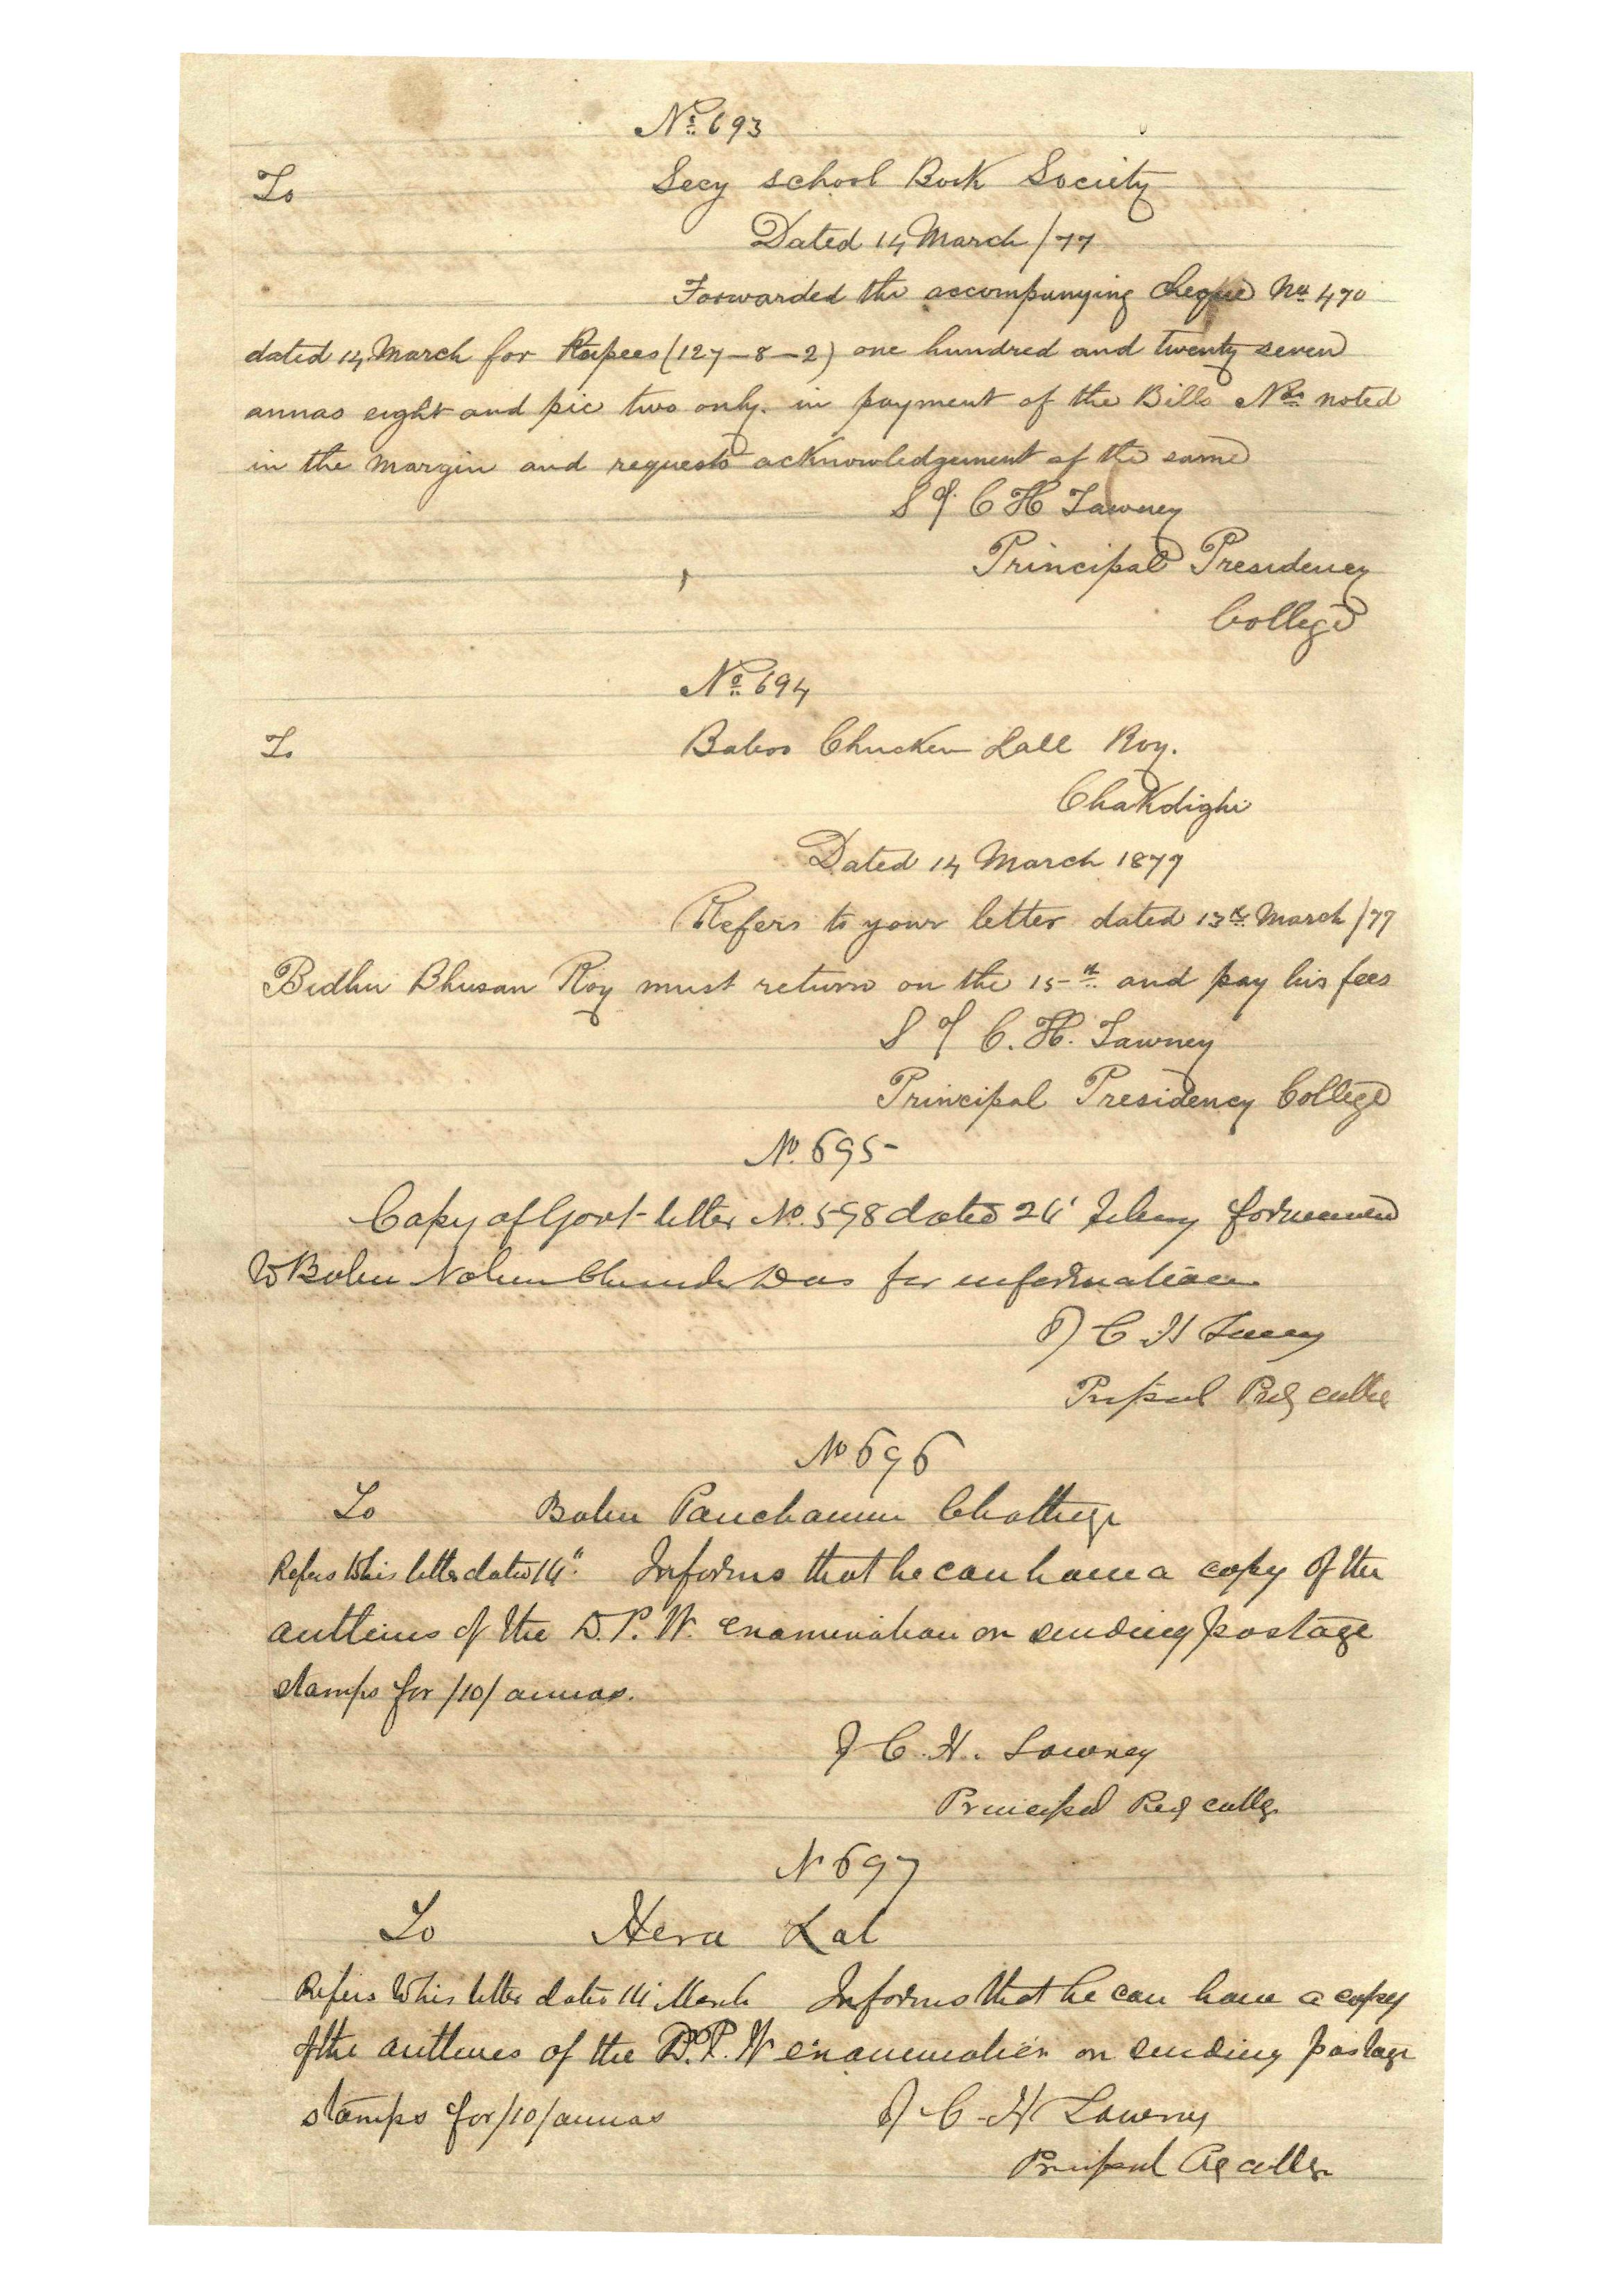 No. 693
To Secy school Book Society
Dated 14 March /77
Forwarded the accompanying cheque No 470
dated 14 March for Rupees (127-8-2) one hundred and twenty seven
annas eight and pie two only. in payment of the Bills Nos noted
in the margin and requests acknowledgement of the same
Sd/ C H Tawney
Principal Presidency
College
No. 694
To Baboo Chucken Lall Roy.
Chakdighi
Dated 14 March 1877
Refers to your letter dated 13th March /77
Bidhu Bhusan Roy must return on the 15th and pay his fees
Sd/ C. H. Tawney
Principal Presidency College
No. 695
Copy of Govt letter No. 598 dated 26' forwarded
to Babu Nobin Chunder Das for information
C H Tawney
Principal
No 696
To Babu Panchanun Chatterje
Refers to his letter dated 14". Informs that he can have a copy of the
outlines of the D. P. W. examination on sending postage
stamps for /10/ annas.
C. H. Tawney
Principal
No 697
To Hera Lal
Refers to his letter dated 14' March Informs that he can have a copy
of the outlines of the D. P. W examination on sending postage
stamps for /10/ annas C H Tawney
Principal